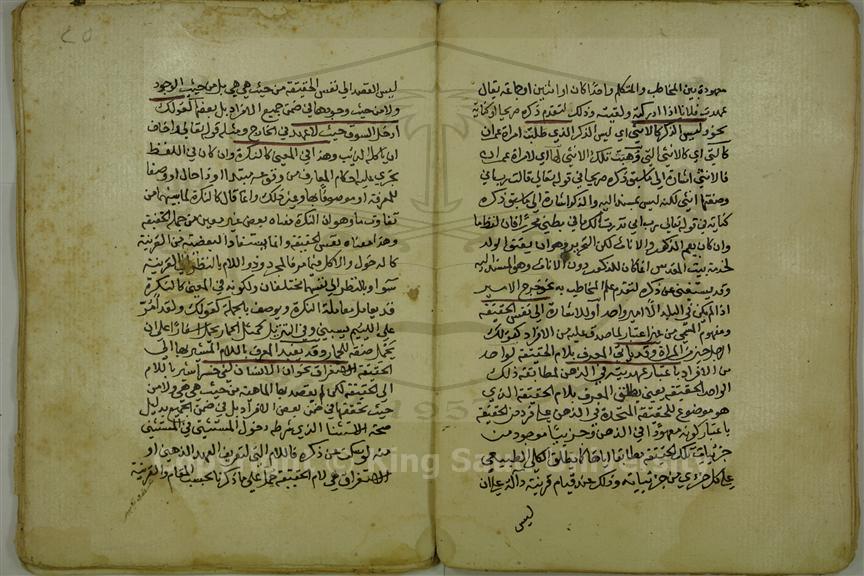 معهودة بين المخاطب والمتكلم واحدا كان او اثنين او جماعة يقال
عهدت فلانا اذا ادركته ولقيته وذلك لتقدم ذكره صريحا او كناية
نحو وليس الذكر كالانثى اي ليس الذكر الذي طلبت امرأة عمران
كالتي اي كالانثى التي وهبت تلك الانثى لها اي لامرأة عمران
فالانثى اشارة الى ما سبق ذكره صريحا في قوله تعالى قالت رب اني
وضعتها انثى لكنه ليس بمسند اليه والذكر اشارة الى ما سبق ذكره
كناية في قوله تعالى رب اني نذرت لك ما في بطني محررا فان لفظ ما
وان كان يعم الذكور والاناث لكن التحرير وهو ان يعتق الولد
لخدمة بيت المقدس انما كان للذكور دون الاناث وهو المسند اليه
وقد يستغنى عن ذكره لتقدم علم المخاطب به نحو خرج الامير
اذا لم يكن في البلد الا امير واحد او للاشارة الى نفس الحقيقة
ومفهوم المسمى من غير اعتبار لما صدق عليه من الافراد كقولك
الرجل خير من المرأة وقد يأتي المعرف بلام الحقيقة لواحد
من الافراد باعتبار عهديته في الذهن لمطابقة ذلك
الواحد الحقيقة يعني يطلق المعرف بلام الحقيقة الذي
هو موضوع للحقيقة المتحدة في الذهن على فرد من الحقيقة
باعتبار كونه معهودا في الذهن وجزئيا موجود من
جزئيات تلك الحقيقة مطابقا اياها كما يطلق الكلي الطبيعي
على كل جزئي من جزئياته وذلك عند قيام قرينة دالة على ان
ليس
٢٥
ليس القصد الى نفس الحقيقة من حيث هي هي بل من حيث الوجود
ولا من حيث وجودها في ضمن جميع الافراد بل بعضها كقولك
ادخل السوق حيث لا عهد في الخارج ومثله قوله تعالى واخاف
ان يأكله الذئب وهذا في المعنى كالنكرة وان كان في اللفظ
يجري عليه احكام المعارف من وقوعه مبتدا او ذا حال او وصفا
للمعرفة او موصوفا بها ونحو ذلك وانما قال كالنكرة لما بينهما من
تفاوت ما وهو ان النكرة معناه بعض غير معين من جملة الحقيقة
وهذا معناه نفس الحقيقة وانما يستفاد البعضية من القرينة
كالدخول والاكل فيما مر فالمجرد وذو اللام بالنظر الى القرينة
سواء وبالنظر الى نفسهما مختلفان ولكونه في المعنى كالنكرة
قد يعامل معاملة النكرة ويوصف بالجملة كقولك ولقد امر
على اللئيم يسبني وفي التنزيل كمثل الحمار يحمل اسفارا على ان
يحمل صفة للحمار وقد يفيد المعرف باللام المشير بها الى
الحقيقة الاستغراق نحو ان الانسان لفي خسر اشير باللام
الى الحقيقة لكن لم يقصد بها الماهية من حيث هي هي ولا من
حيث تحققها في ضمن بعض الافراد بل في ضمن الجميع بدليل
صحة الاستثناء الذي شرطه دخول المستثنى في المستثنى
منه لو سكت عن ذكره فاللام التي لتعريف العهد الذهني او
الاستغراق هي لام الحقيقة حمل على ما ذكرنا بحسب المقام والقرينة
King Saud University
1957